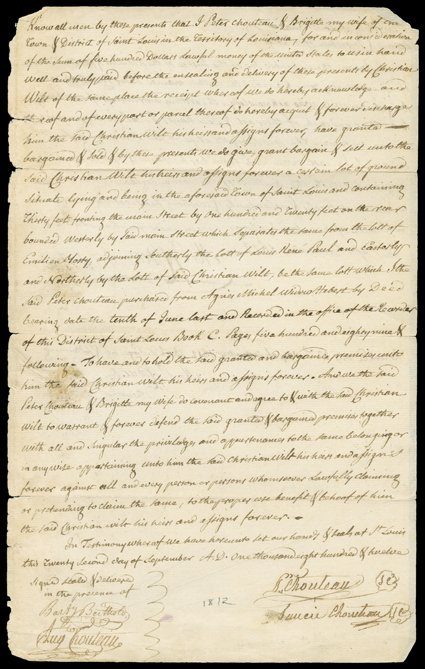 Know all men by these presents that I Peter Chouteau & Brigitte my wife of
Town & District of Saint Louis in the Territory of Louisiana, for and in consideration
of the sum of five hundred Dollars lawful money of the united States to us in hand
Well and truly paid before the ensealing and delivery of these presents by Christian
Wilt of the same place the receipt whereof we do hereby acknowledge and
thereof and of every part or parcel thereof do hereby acquit & forever discharge
him the said Christian Wilt his heirs and assigns forever, have granted
bargained & sold & by these presents we do give, grant bargain & sell unto the
Said Christian Wilt his heirs and assigns forever a certain lot of ground
Situate lying and being in the aforesaid Town of Saint Louis and containing
Thirty feet fronting the main Street by one hundred and twenty feet on the rear
bounded Westerly by said main Street which Separates the same from the lott of
Emilien Yosty, adjoining Southerly the lott of Louis René Paul and Easterly
and Northerly by the lotts of Said Christian Wilt, be the same lott which I the
Said Peter Chouteau purchased from Agnes Michel Widow Hebert by Deed
bearing date the tenth of June last and Recorded in the office of the Recorder
of this District of Saint Louis Book C. Pages five hundred and eighty nine &
following - To have and to hold the said granted and bargained premises unto
him the said Christian Wilt his heirs and assigns forever. And we the said
Peter Chouteau & Brigitte my Wife do covenant and agree to & with the said Christian
Wilt to warrant & forever defend the said granted & bargained premises together
with all and Singular the priviledges and appurtenances to the same belonging or
in any wise appertaining unto him the said Christian Wilt his heirs and assigns
forever against all and every person or persons whomsoever Lawfully claiming
or pretending to claim the same, to the proper use benefit & behoof of him
the said Christian Wilt his heirs and assigns forever. -
In Testimony whereof we have hereunto set our hands & seals at St Louis
this Twenty Second day of September A.D. One thousand eight hundred & twelve
Signed sealed & delivered
in the presence of
Pre Chouteau
1812
Chouteau
Aug Chouteau